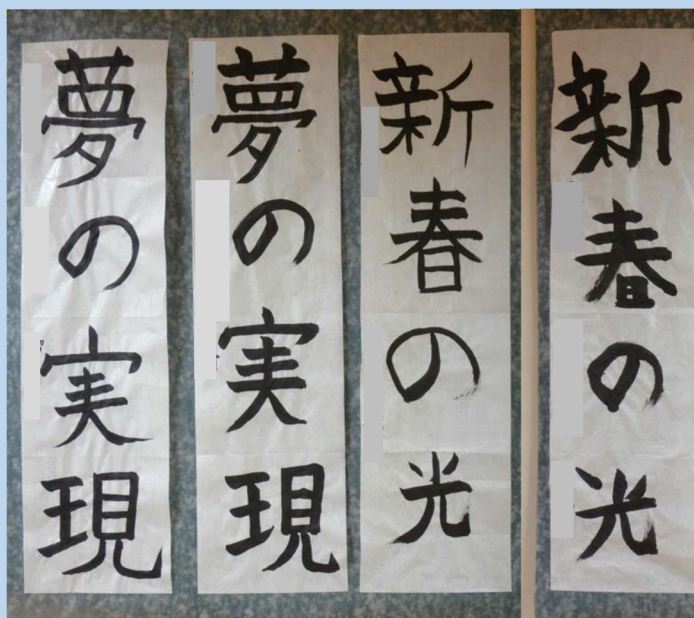 新春の光
新春の光
夢の実現
夢の実現